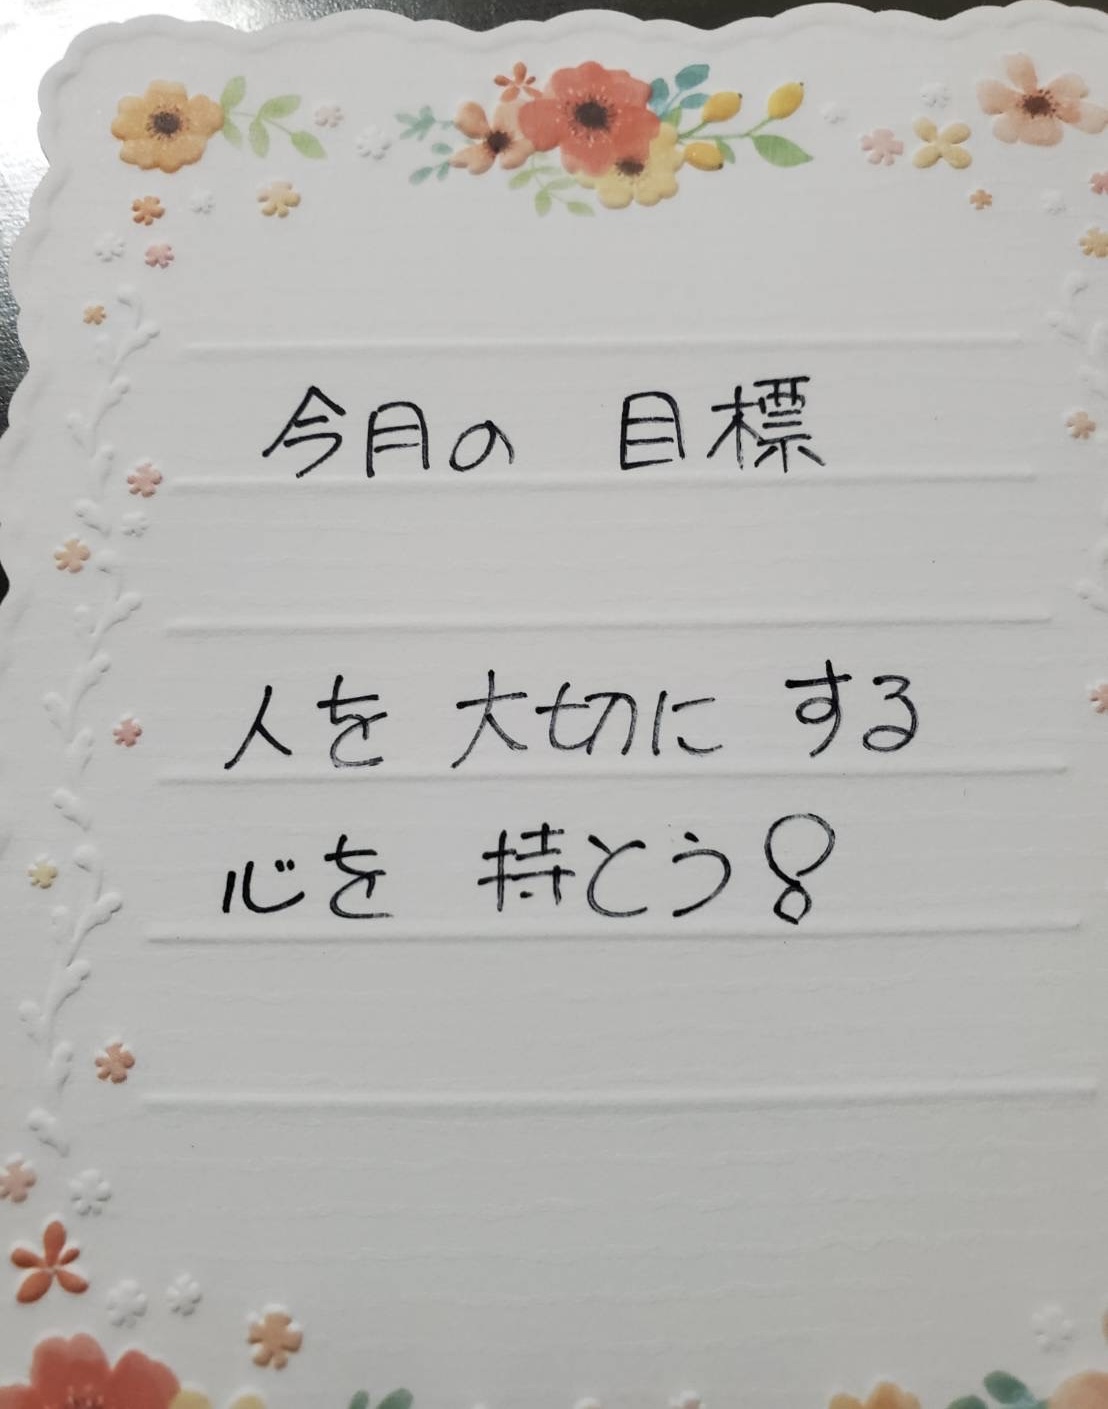 今月の 目標
人を 大切に する
心を 持とう!